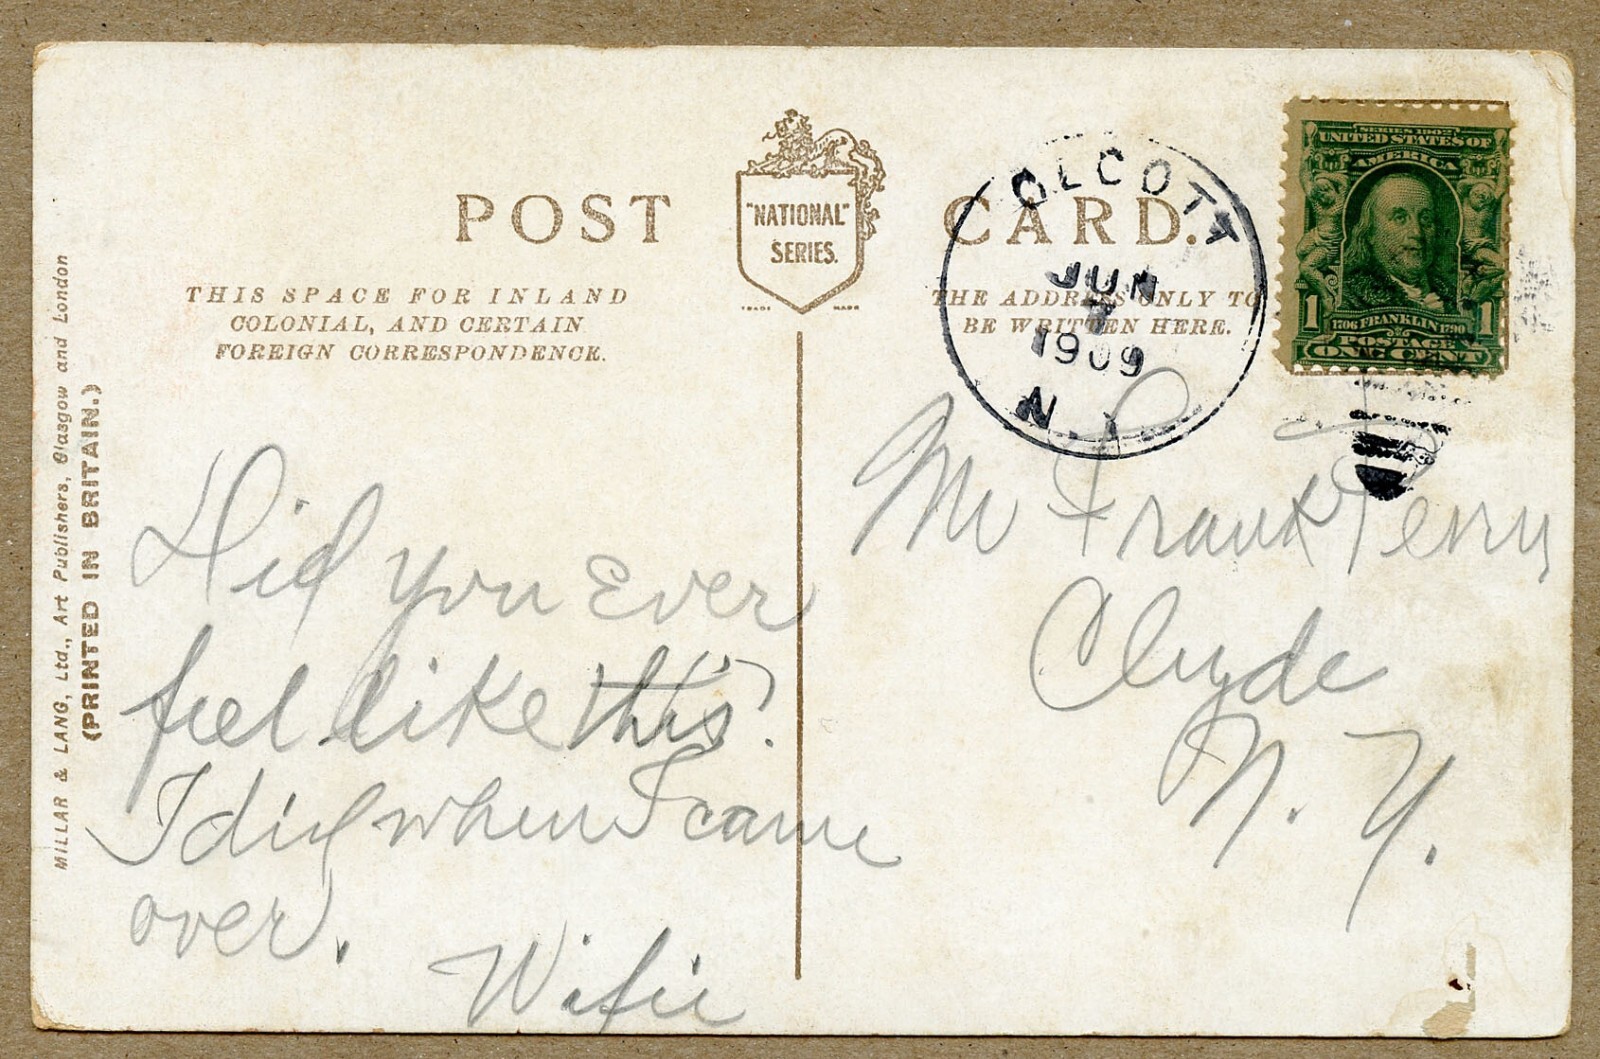 POST CARD.
"NATIONAL"
SERIES.
TRADE MARK
THIS SPACE FOR INLAND
COLONIAL, AND CERTAIN
FOREIGN CORRESPONDENCE.
THE ADDRESS ONLY TO
BE WRITTEN HERE.
MILLAR & LANG, Ltd., Art Publishers, Glasgow and London
(PRINTED IN BRITAIN.)
OLCOTT
JUN
7
1909
N.Y.
SERIES 1902
UNITED STATES OF
AMERICA
1 1
1706 FRANKLIN 1790
POSTAGE
ONE CENT
Did you Ever
feel like this?
I did when I came
over.
Wifie
Mr Frank Perry
Clyde
N. Y.